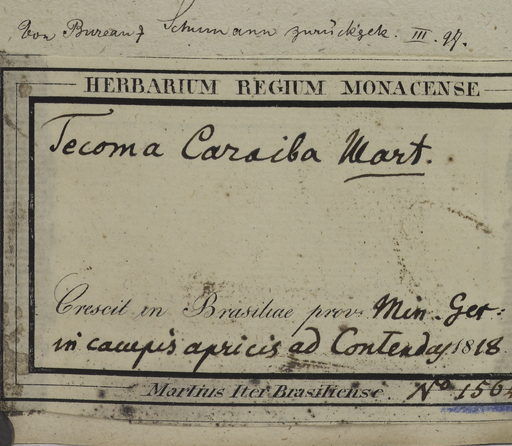 Von Bureau & Schumann zurückgek. III. 97.
HERBARIUM REGIUM MONACENSE
Tecoma Caraiba Mart.
Crescit in Brasiliae prov. Min. Ger:
in campis apricis ad Contendas 1818
Martius Iter Brasiliense No 1564